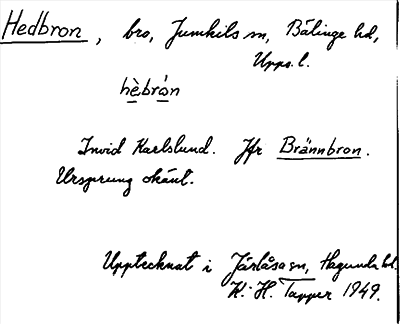 Hedbron, bro, Jumkils sn, Bälinge hd,
Upps. l.
hèbrón
Invid Karlslund. Jfr Brännbron.
Ursprung okänt.
Upptecknat i Järlåsa sn, Hagunda hd.
K. H. Tapper 1949.